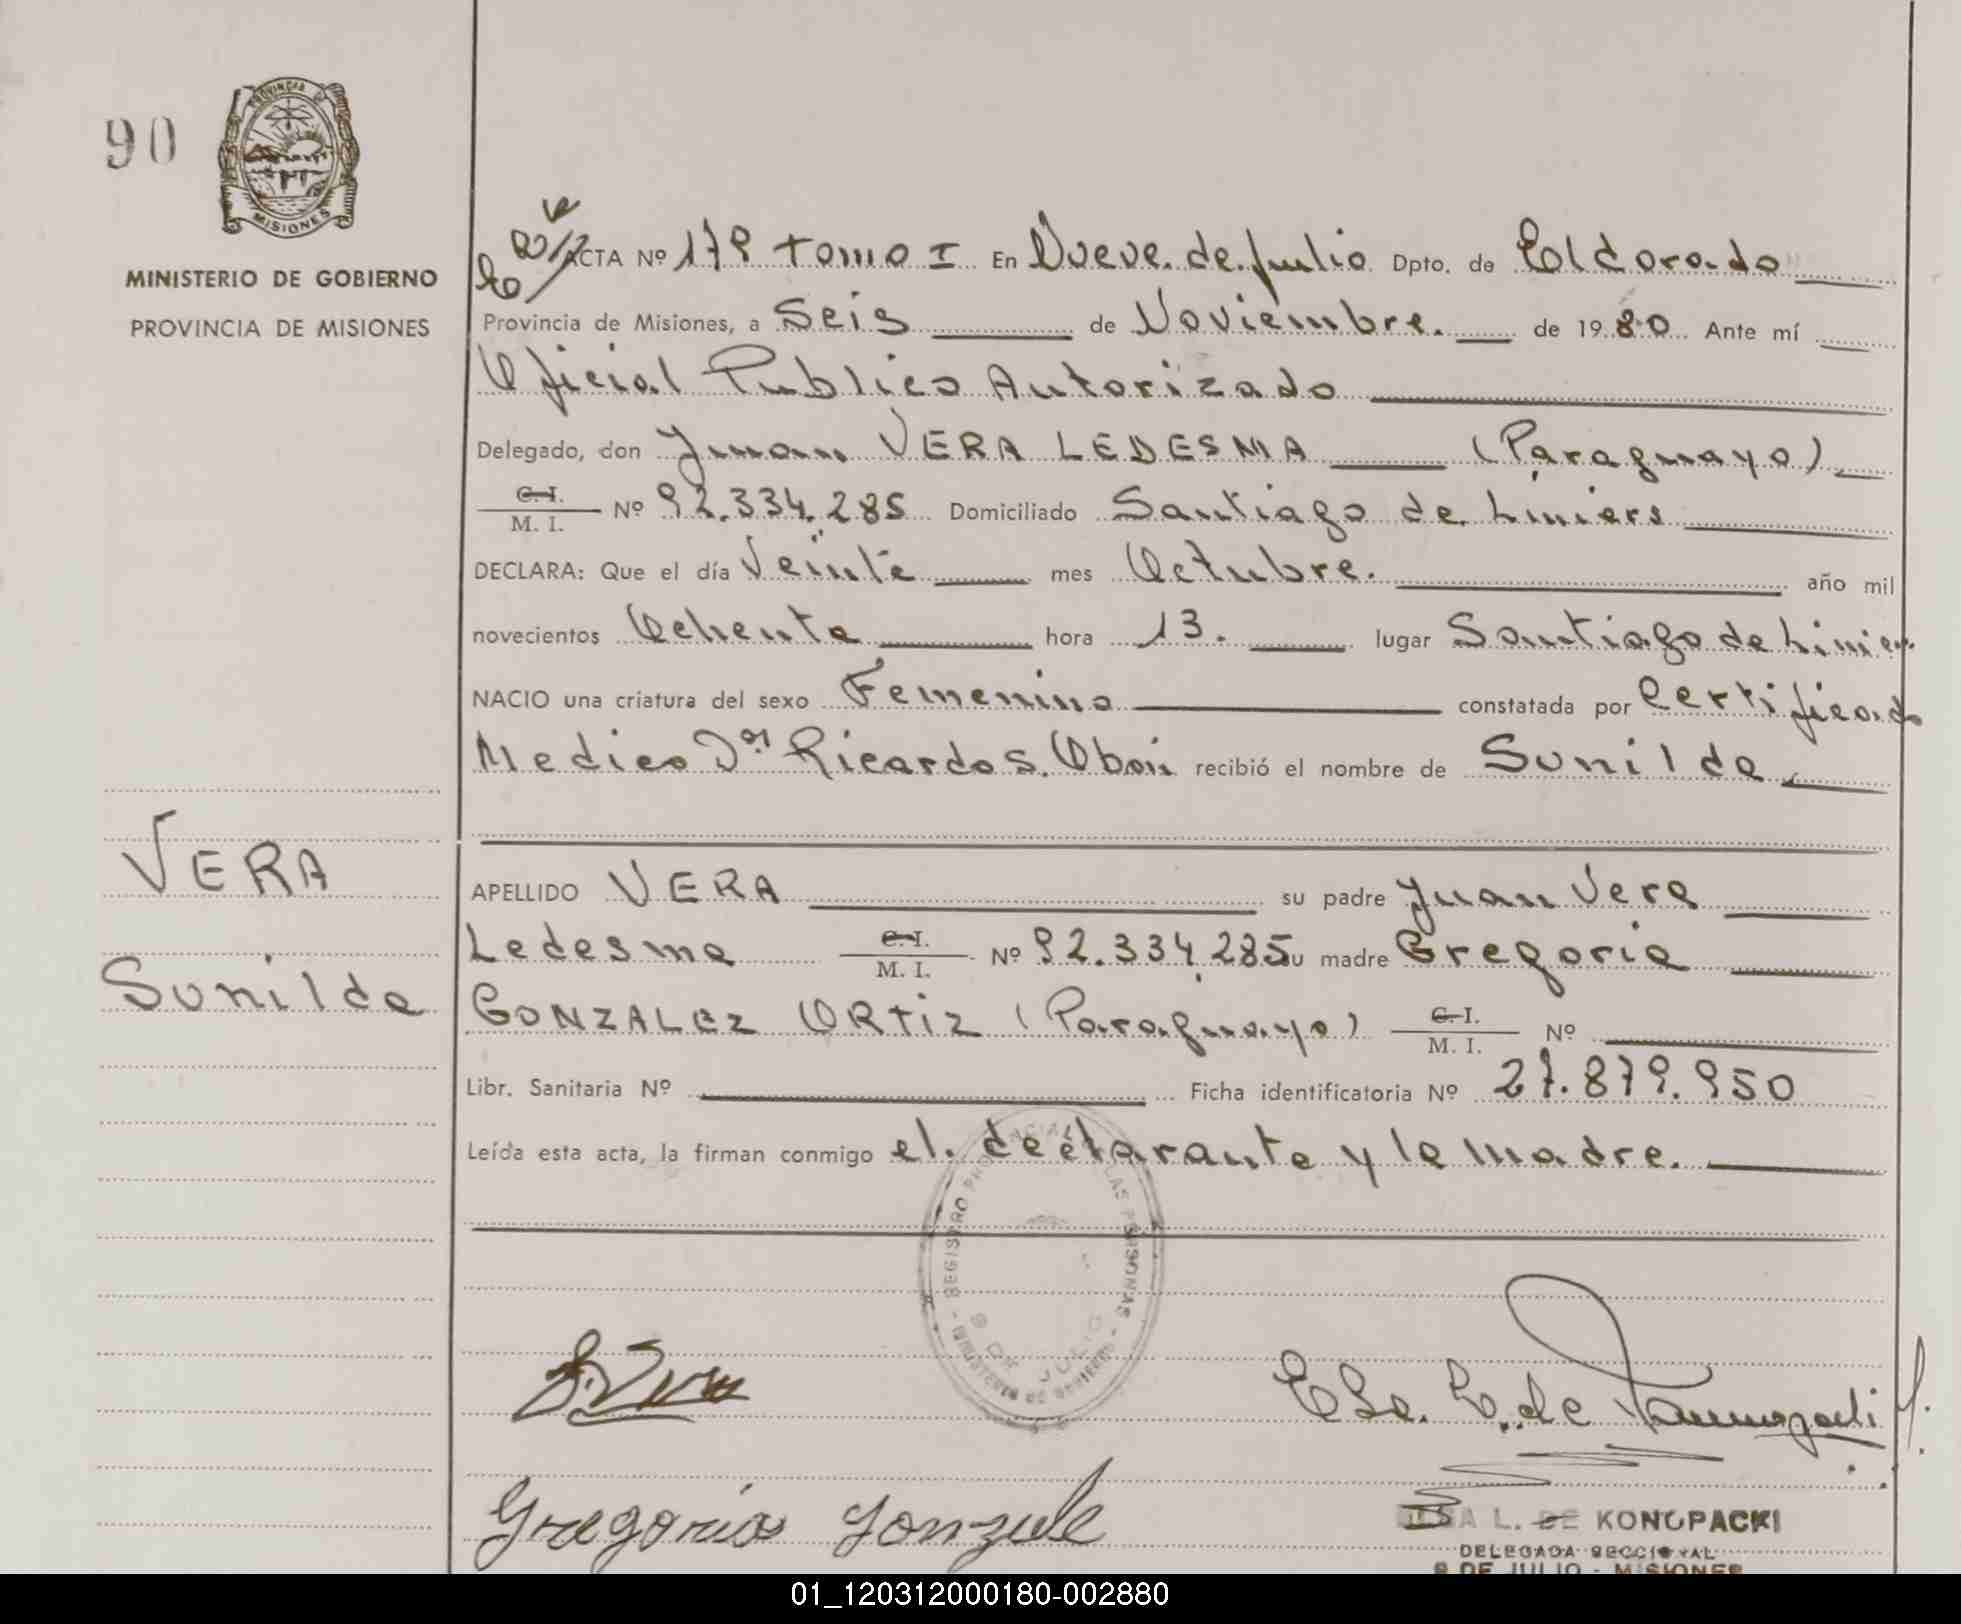 90
PROVINCIA DE
MISIONES
MINISTERIO DE GOBIERNO
PROVINCIA DE MISIONES
ACTA Nº 179 Tomo I En Nueve de Julio Dpto. de Eldorado
Provincia de Misiones, a Seis de Noviembre. de 1980 Ante mí
Oficial Publico Autorizado
Delegado, don Juan VERA LEDESMA (Paraguayo)
C.I.
M. I. Nº 92.334.285 Domiciliado Santiago de Liniers
DECLARA: Que el día Veinte mes Octubre. año mil
novecientos Ochenta hora 13. lugar Santiago de Liniers
NACIO una criatura del sexo Femenino constatada por Certificado
Medico Dor Ricardo S. Oboi recibió el nombre de Sunilda
VERA
Sunilda
APELLIDO VERA su padre Juan Vera
Ledesma C.I. M. I. Nº 92.334.285 su madre Gregoria
GONZALEZ ORTIZ (Paraguayo) C.I. M. I. Nº
Libr. Sanitaria Nº Ficha identificatoria Nº 27.879.950
Leída esta acta, la firman conmigo el declarante y la madre.
REGISTRO PROVINCIAL DE LAS PERSONAS - MINISTERIO DE GOBIERNO -
9 DE JULIO
Gregoria Gonzale
ELSA L. DE KONOPACKI
DELEGADA SECCIONAL
9 DE JULIO - MISIONES
01_120312000180-002880